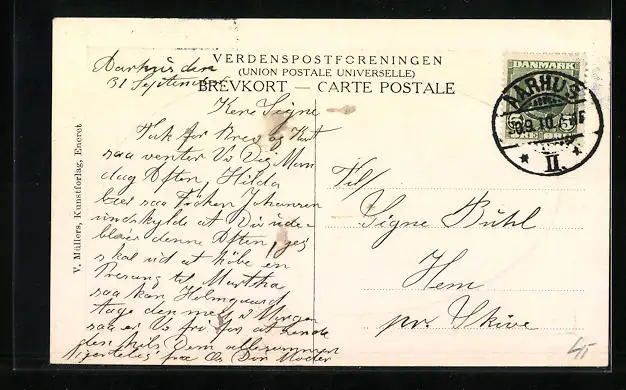 VERDENSPOSTFORENINGEN
(UNION POSTALE UNIVERSELLE)
BREVKORT — CARTE POSTALE
DANMARK
AARHUS
II.
V. Müllers, Kunstforlag, Eneret
Aarhus den
31 September
Kere Signe
Tak for Brev og Kort
saa venter Vi Dig Man
dag Aften, Hilda
beer saa Frøken Johansen
undskylde at Din ude-
bliver denne Aften, jeg
skal ud at köbe en
Presang til Martha
saa kan Holmgaard
tage den med i Morgen
saa er Vi fri for at sende
den hils Dem allesammen
fra Os Din Moder
Til/
Signe Bühl
Hem
pr. Skive
45